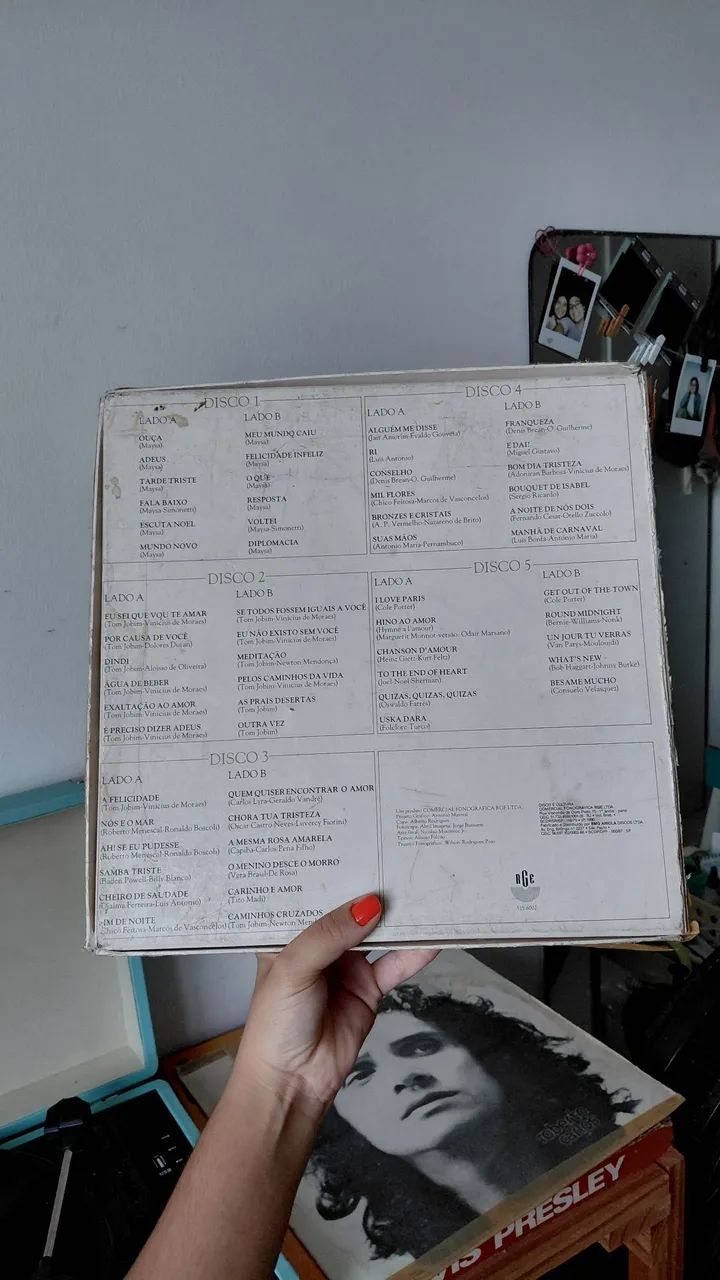 DISCO 1
LADO A
OUÇA
(Maysa)
ADEUS
(Maysa)
TARDE TRISTE
(Maysa)
FALA BAIXO
(Maysa-Simonetti)
ESCUTA NOEL
(Maysa)
MUNDO NOVO
(Maysa)
LADO B
MEU MUNDO CAIU
(Maysa)
FELICIDADE INFELIZ
(Maysa)
O QUE
(Maysa)
RESPOSTA
(Maysa)
VOLTEI
(Maysa-Simonetti)
DIPLOMACIA
(Maysa)
DISCO 2
LADO A
EU SEI QUE VOU TE AMAR
(Tom Jobim-Vinicius de Moraes)
POR CAUSA DE VOCÊ
(Tom Jobim-Dolores Duran)
DINDI
(Tom Jobim-Aloisio de Oliveira)
ÁGUA DE BEBER
(Tom Jobim-Vinicius de Moraes)
EXALTAÇÃO AO AMOR
(Tom Jobim-Vinicius de Moraes)
É PRECISO DIZER ADEUS
(Tom Jobim-Vinicius de Moraes)
LADO B
SE TODOS FOSSEM IGUAIS A VOCÊ
(Tom Jobim-Vinicius de Moraes)
EU NÃO EXISTO SEM VOCÊ
(Tom Jobim-Vinicius de Moraes)
MEDITAÇÃO
(Tom Jobim-Newton Mendonça)
PELOS CAMINHOS DA VIDA
(Tom Jobim-Vinicius de Moraes)
AS PRAIS DESERTAS
(Tom Jobim)
OUTRA VEZ
(Tom Jobim)
DISCO 3
LADO A
A FELICIDADE
(Tom Jobim-Vinicius de Moraes)
NÓS E O MAR
(Roberto Menescal-Ronaldo Boscoli)
AH! SE EU PUDESSE
(Roberto Menescal-Ronaldo Boscoli)
SAMBA TRISTE
(Baden Powell-Billy Blanco)
CHEIRO DE SAUDADE
(Djalma Ferreira-Luis Antonio)
FIM DE NOITE
(Chico Feitosa-Marcos de Vasconcelos)
LADO B
QUEM QUISER ENCONTRAR O AMOR
(Carlos Lyra-Geraldo Vandré)
CHORA TUA TRISTEZA
(Oscar Castro Neves-Luvercy Fiorini)
A MESMA ROSA AMARELA
(Capiba-Carlos Pena Filho)
O MENINO DESCE O MORRO
(Vera Braul-De Rosa)
CARINHO E AMOR
(Tito Madi)
CAMINHOS CRUZADOS
(Tom Jobim-Newton
DISCO 4
LADO A
ALGUÉM ME DISSE
(Jair Amorim-Evaldo Gouveia)
RI
(Luis Antonio)
CONSELHO
(Denis Brean-O. Guilherme)
MIL FLORES
(Chico Feitosa-Marcos de Vasconcelos)
BRONZES E CRISTAIS
(A. P. Vermelho-Nazareno de Brito)
SUAS MÃOS
(Antonio Maria-Pernambuco)
LADO B
FRANQUEZA
(Denis Brean-O. Guilherme)
E DAI?
(Miguel Gustavo)
BOM DIA TRISTEZA
(Adoniran Barbosa-Vinicius de Moraes)
BOUQUET DE ISABEL
(Sergio Ricardo)
A NOITE DE NÓS DOIS
(Fernando Cesar-Otello Zuccolo)
MANHÃ DE CARNAVAL
(Luis Bonfá-Antonio Maria)
DISCO 5
LADO A
I LOVE PARIS
(Cole Porter)
HINO AO AMOR
(Hymne a l'amour)
(Marguerit Monnot-versão: Odair Marsano)
CHANSON D'AMOUR
(Heinz Giertz-Kurt Feltz)
TO THE END OF HEART
(Joel-Noel Sherman)
QUIZAS, QUIZAS, QUIZAS
(Oswaldo Farrés)
USKA DARA
(Folclore Turco)
LADO B
GET OUT OF THE TOWN
(Cole Porter)
ROUND MIDNIGHT
(Bernie-Williams-Monk)
UN JOUR TU VERRAS
(Van Parys-Mouloudji)
WHAT'S NEW
(Bob Haggart-Johnny Burke)
BESAME MUCHO
(Consuelo Velasquez)
COMERCIAL FONOGRÁFICA RGE LTDA.
DISCO É CULTURA
RGE
roberto
carlos
PRESLEY